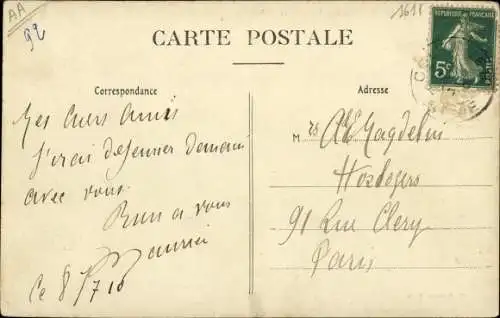 AA
92
1611
CARTE POSTALE
REPUBLIQUE FRANÇAISE
5c
Correspondance
Mes chers amis
J'irai déjeuner demain
avec vous.
Bien a vous
Maurice
Ce 8/7 10
Adresse
M rs
Horlogers
91 Rue Clery
Paris